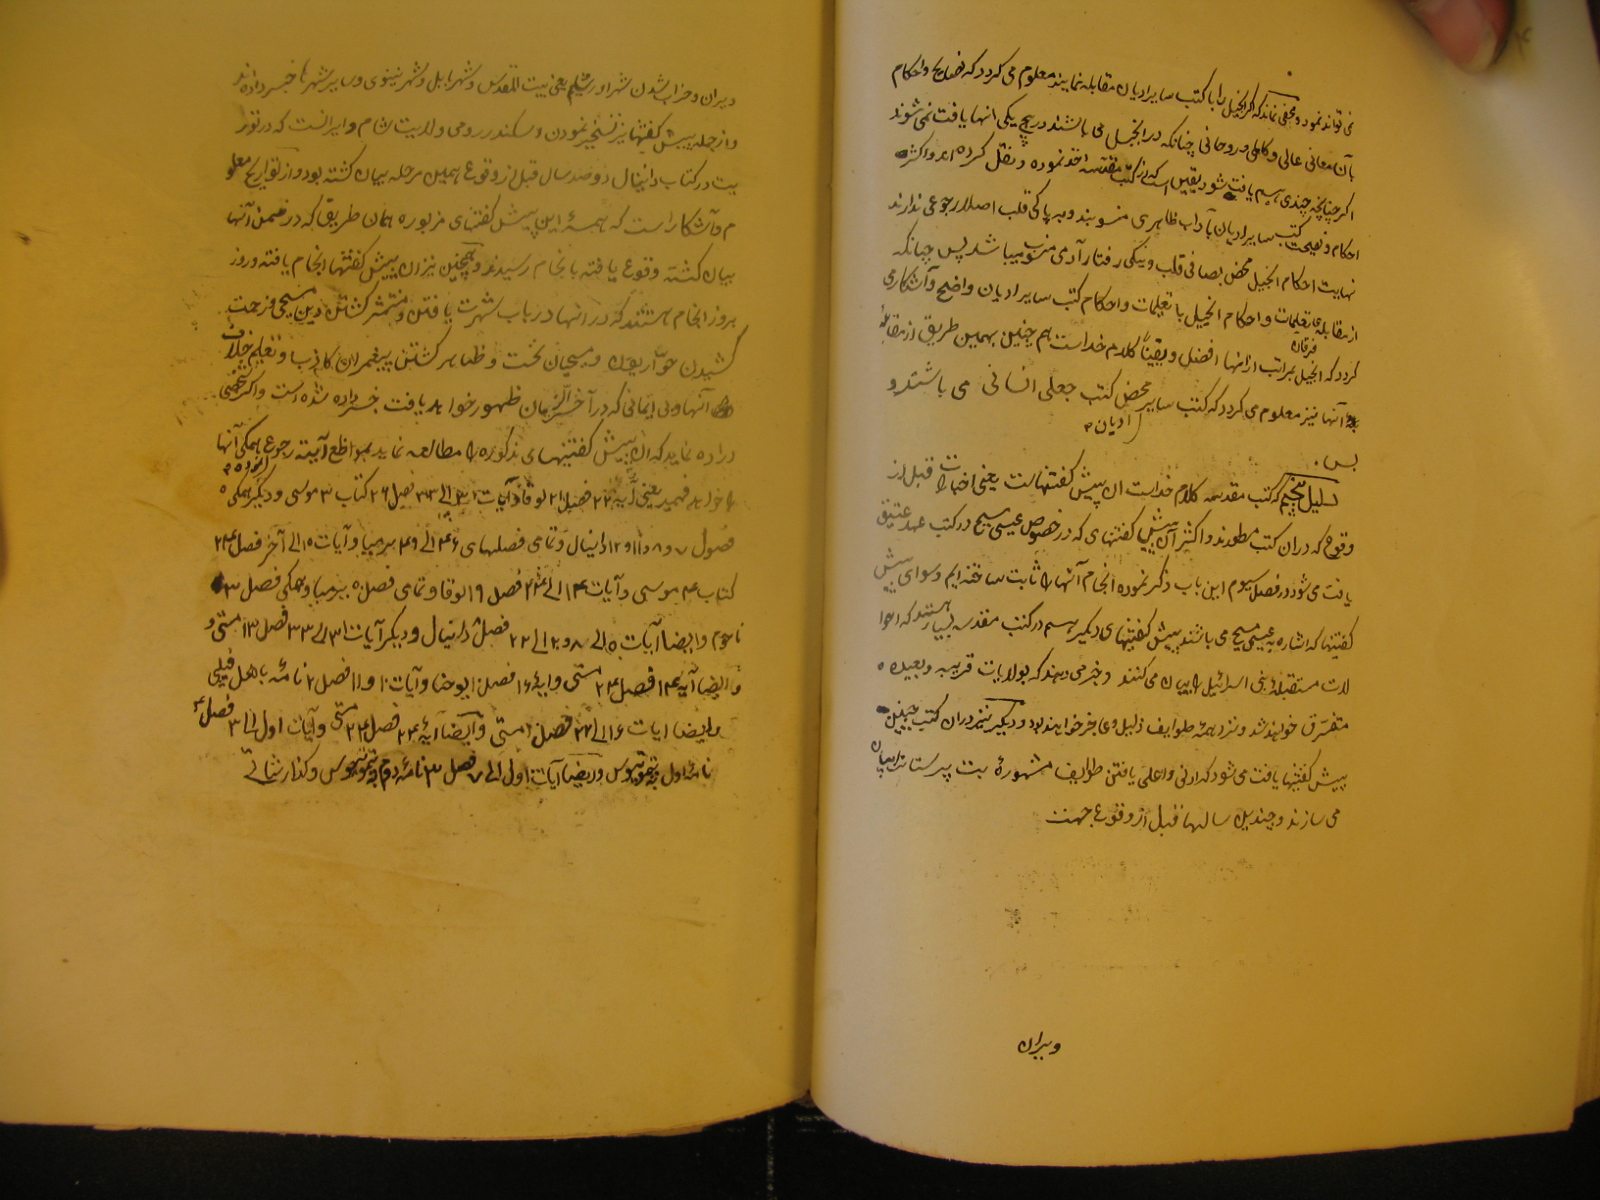 نمی تواند نمود و مخفی نماند که اگر انجیل را با کتب سایر ادیان مقابله نمایند معلوم می کردد که نصایح و احکام
بآن معانی عالی و کامل و روحانی چنانکه در انجیل می باشند در هیچ یکی آنها یافت نمی شوند
اکر چنانچه چندی هم یافت شود یقین است که از کتب مقدسه اخذ نموده و نقل کرده اند و اکثر
احکام و نصیحت کتب سایر ادیان بآداب ظاهری منسوبند و به پاکی قلب اصلا رجوعی ندارند
نهایت احکام انجیل محض بصافی قلب و نیکی رفتار آدمی منسوب میباشد پس چنانکه
از مقابله تعلیمات و احکام انجیل با تعلیمات و احکام کتب سایر ادیان واضح و آشکار می
کردد که انجیل بمراتب از آنها افضل و یقیناً کلام خداست هم چنین بهمین طریق از مقابله
فرقان
آنها نیز معلوم می کردد که کتب سایر محض کتب جعلی انسانی می باشند و
ادیان
بس
دلیل پنجم که کتب مقدسه کلام خداست آن پیش کفتنهاست یعنی اخبارات قبل از
وقوع که در آن کتب مسطورند و اکثر آن پیش کفتنهای که در خصوص عیسی مسیح در کتب عهد عتیق
یافت می شود در فصل سیوم این باب ذکر نموده انجام آنها را ثابت ساخته ایم و سوای پیش
کفتنها که اشاره به عیسی مسیح می باشند پیش کفتنهای دیکر هم در کتب مقدسه بسیار هستند که احوا
لات مستقبله بنی اسرائیل را بیان می کنند و خبر می دهند که بولایات قریبه و بعیده
متفرق خواهند شد و نزد همه طوایف ذلیل و عاجز خواهند بود و دیکر نیز در آن کتب چنین
پیش کفتنها یافت می شود که ادنی و اعلی یافتن طوایف مشهوره بت پرستان را بیان
می سازند و چندین سالها قبل از وقوع جهت
ویران
ویران و خراب شدن شهر اورشلیم یعنی بیت المقدس و شهر بابل و شهر نینوی و سایر شهرها خبر داده اند
و از جمله پیش کفتنها نیز تسخیر نمودن اسکندر رومی ولایت شام و ایرانست که در تور
یت در کتاب دانیال دو صد سال قبل از وقوع همین مرحله بیان کشته بود و از تواریخ معلو
م و آشکار است که همه این پیش کفتنهای مزبوره همان طریق که در ضمن آنها
بیان کشته وقوع یافته بانجام رسیدند و همچنین نیز آن پیش کفتنها انجام یافته و روز
بروز انجام هستند که در آنها در باب شهرت یافتن و منتشر کشتن دین مسیحی و زحمت
کشیدن حواریون و مسیحیان نخست و ظاهر کشتن پیغمبران کاذب و تعلیم خلاف
آنها و بی ایمانی که در آخر الزمان ظهور خواهد یافت خبر داده شده است و اکر شخصی
اراده نماید که آن پیش کفتنهای مذکوره را مطالعه نماید بمواضع آتیه رجوع همکی آنها
نموده
را خواهد فهمید یعنی آیه ۲۴ فصل ۲۱ لوقا و آیات ۳۱ الی ۳۳ فصل ۲۶ کتاب ۳ موسی و دیکر همکی
فصول ۷ و ۸ و ۱۱ و ۱۲ دانیال و تمامی فصلهای ۴۶ الی ۴۹ یرمیا و آیات ۱۵ الی آخر فصل ۲۴
کتاب ۴ موسی و آیات ۴۱ الی ۴۴ فصل ۱۹ لوقا و تمامی فصل ۵۰ یرمیا و همکی فصل ۳
ناحوم و ایضا آیات ۵ الی ۸ و ۲۰ الی ۲۲ فصل ۸ دانیال و دیکر آیات ۳۱ الی ۳۳ فصل ۱۳ متی و
و ایضا آیه ۱۴ فصل ۲۴ متی و آیه ۱۶ فصل ۱۰ یوحنا و آیات ۱۰ و ۱۱ فصل ۲ نامه باهل فیلپی
و ایضا آیات ۱۶ الی ۲۲ فصل ۱۰ متی و ایضا آیه ۲۴ فصل ۲۴ متی و آیات اول الی ۳ فصل ۴
نامه اول به تیموتیوس و ایضا آیات اول الی ۷ فصل ۳ نامه دوم به تیموتیوس و کذارشاتی